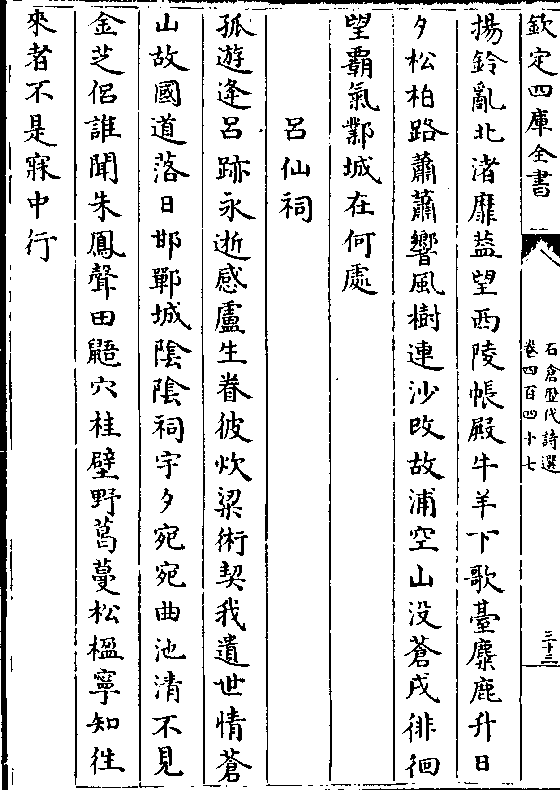 欽定四庫全書
石倉歷代詩選
卷四百四十七
三十三
揚鈴亂北渚靡葢望西陵帳殿牛羊下歌臺麋鹿升日
夕松柏路蕭蕭響風樹連沙改故浦空山没蒼戌徘徊
望霸氣鄴城在何處
呂仙祠
孤遊逢呂跡永逝感盧生眷彼炊粱術契我遺世情蒼
山故國道落日邯鄲城陰陰祠宇夕宛宛曲池清不見
金芝侣誰聞朱鳳聲田鼯穴桂壁野葛蔓松楹寧知徃
來者不是寐中行